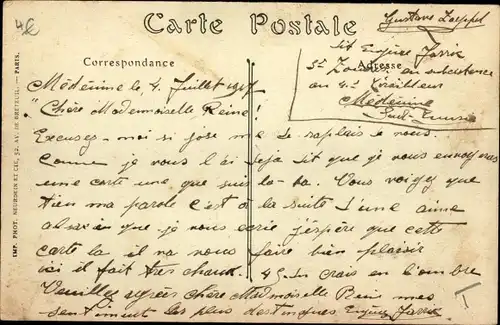 4€
Carte Postale
Gustave Zaeppel
Correspondance
Adresse
dit Eugène Farrie
3e Zouaves en subsistance
au 4e Tirailleur
Médenine
Sud-Tunisie
Médenine le 4 Juillet 1917
"Chère Mademoiselle Reine!
Excusez-moi si jose me rapeler a vous.
Comme je vous l'ai deja dit que je vous enverrais
une carte une que suis la-ba. Vous voyez que
tien ma parole c'est a la suite d'une
que je vous ecrie j'éspère que cette
carte la il va vous faire bien plaisir
ici il fait très chaux. en l'ombre
Veuillez agréés chère Mademoiselle Reine mes
sentiments les plus destingues Eugène Farrie
IMP. PHOT. NEURDEIN ET CIE, 52, AV. DE BRETEUIL. — PARIS.